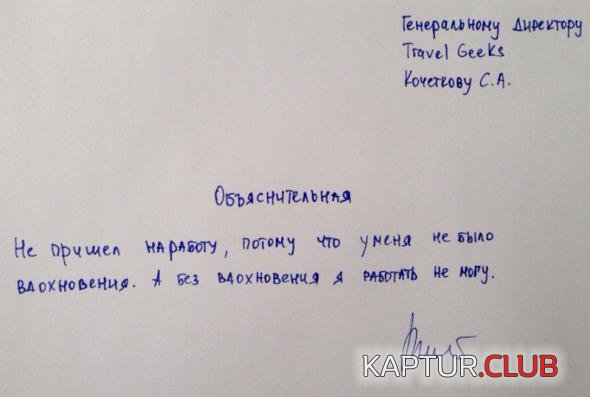 Генеральному Директору
Travel Geeks
Кочеткову С.А.
Объяснительная
Не пришел на работу, потому что у меня не было
вдохновения. А без вдохновения я работать не могу.
KAPTUR.CLUB